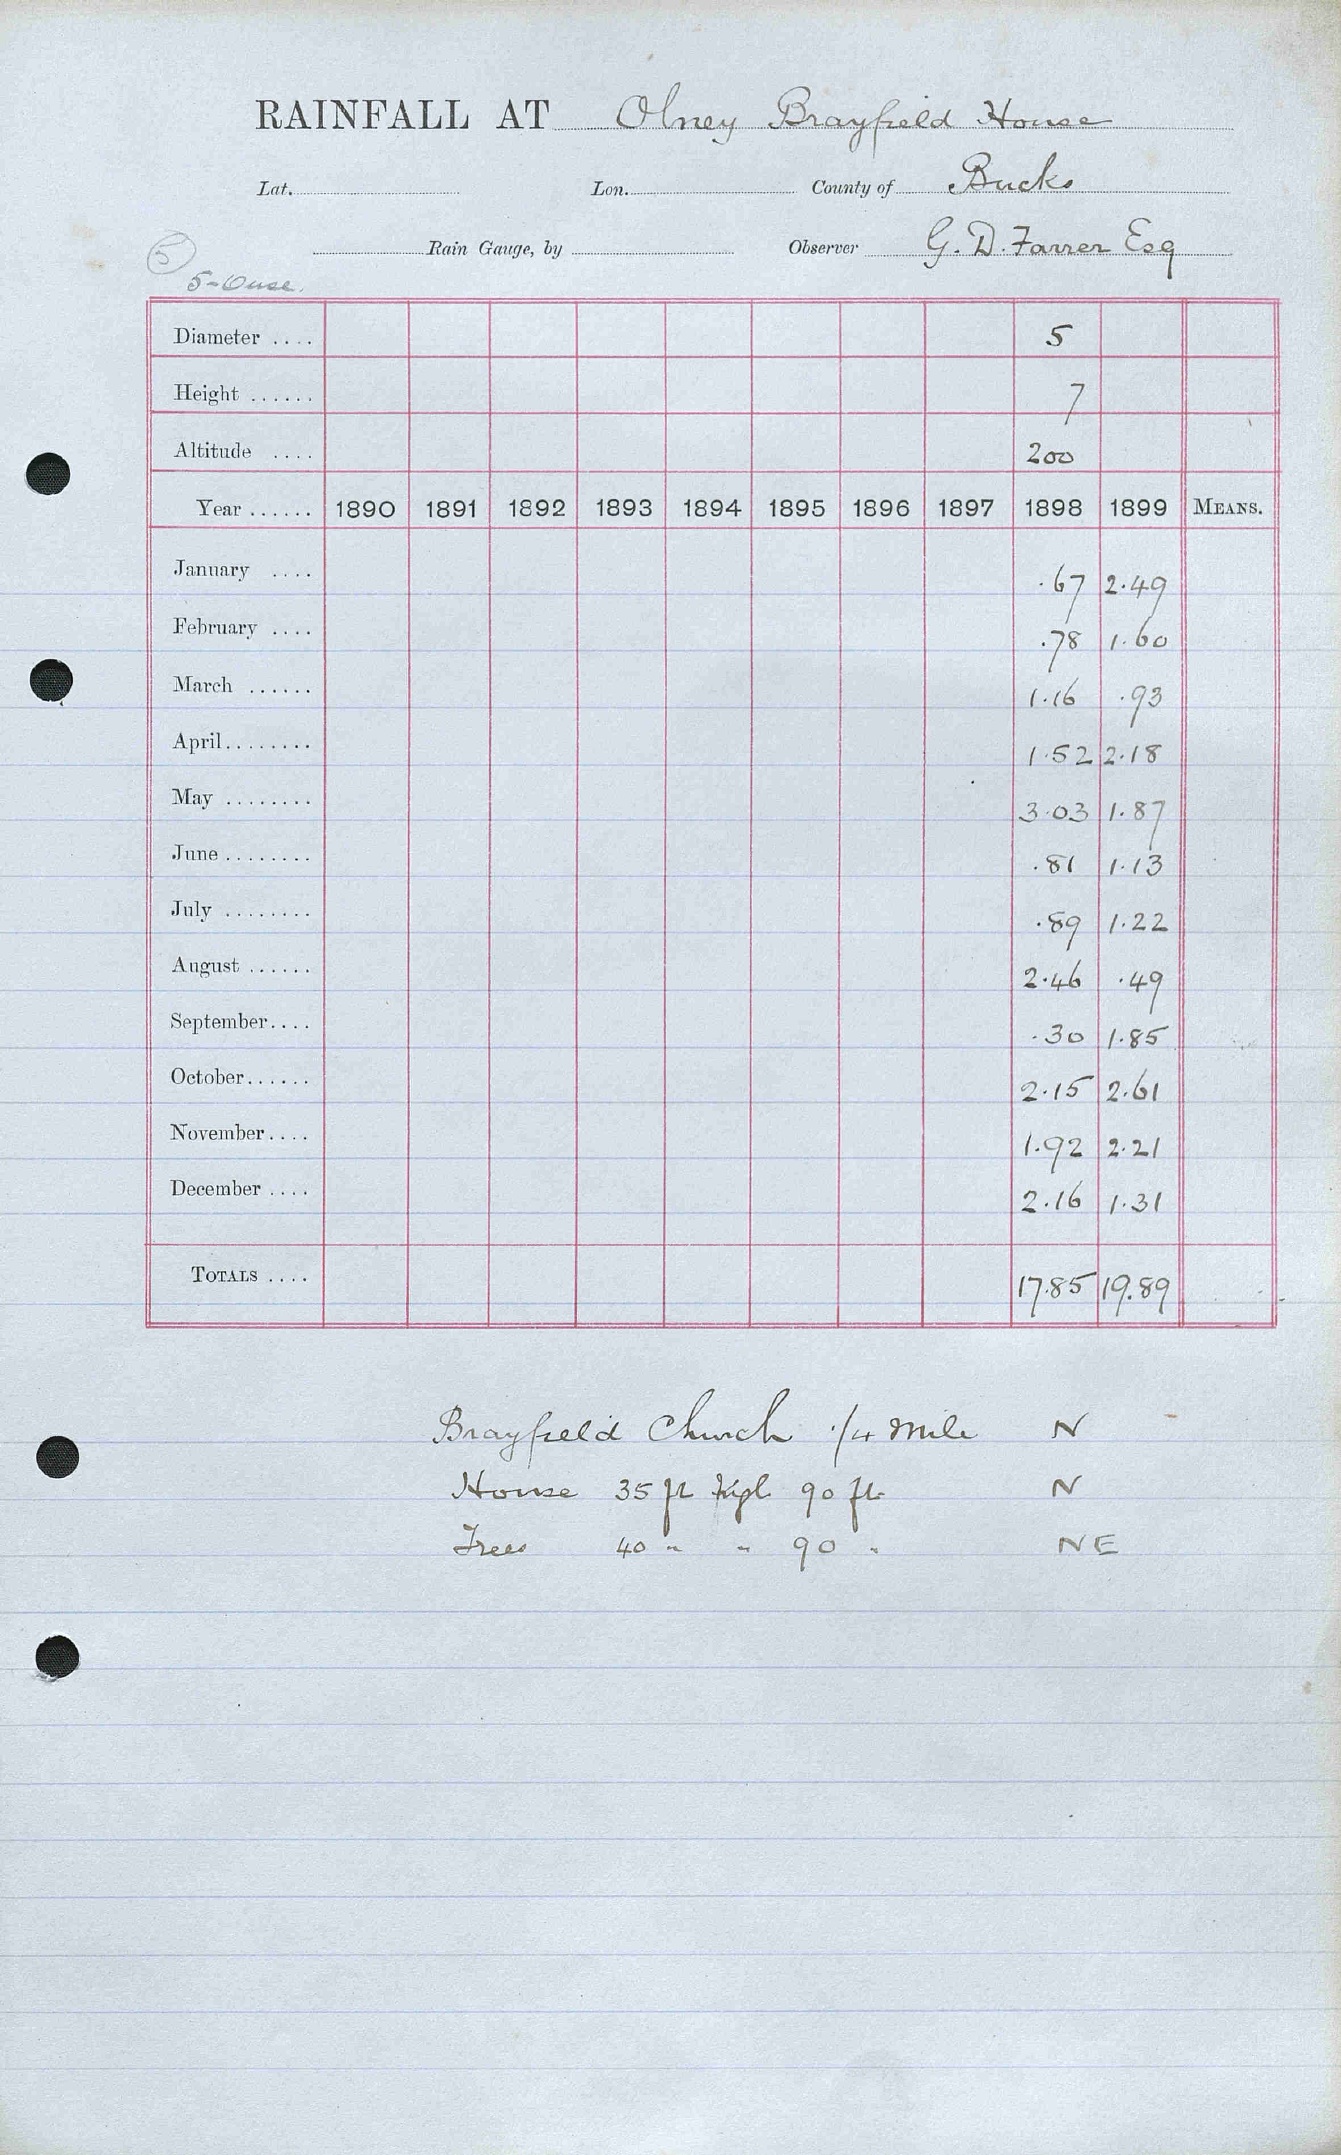 RAINFALL AT Olney Brayfield House
Lat. Lon. County of Bucks
Rain Gauge, by Observer G. D. Farrer Esq
5
5-Ouse.
Diameter .... 5
Height ...... 7
Altitude .... 200
Year ...... 1890 1891 1892 1893 1894 1895 1896 1897 1898 1899 MEANS.
January .... .67 2.49
February .... .78 1.60
March ...... 1.16 .93
April........ 1.52 2.18
May ........ 3.03 1.87
June ........ .81 1.13
July ........ .89 1.22
August ...... 2.46 .49
September.... .30 1.85
October...... 2.15 2.61
November.... 1.92 2.21
December .... 2.16 1.31
TOTALS .... 17.85 19.89
Brayfield Church 1/4 mile N
House 35 ft high 90 ft. N
Trees 40 " " 90 " NE